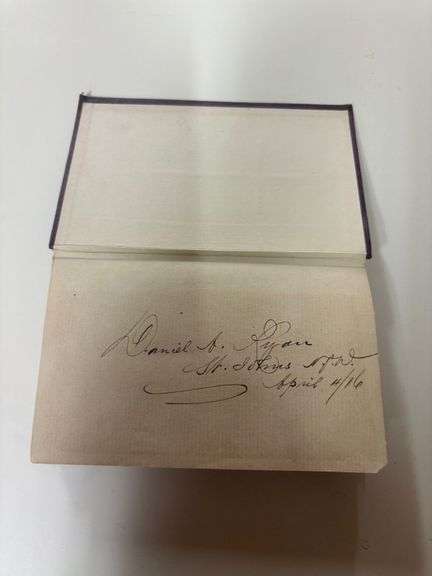 Daniel A. Ryan
St. Johns N.F.D.
April 4/16